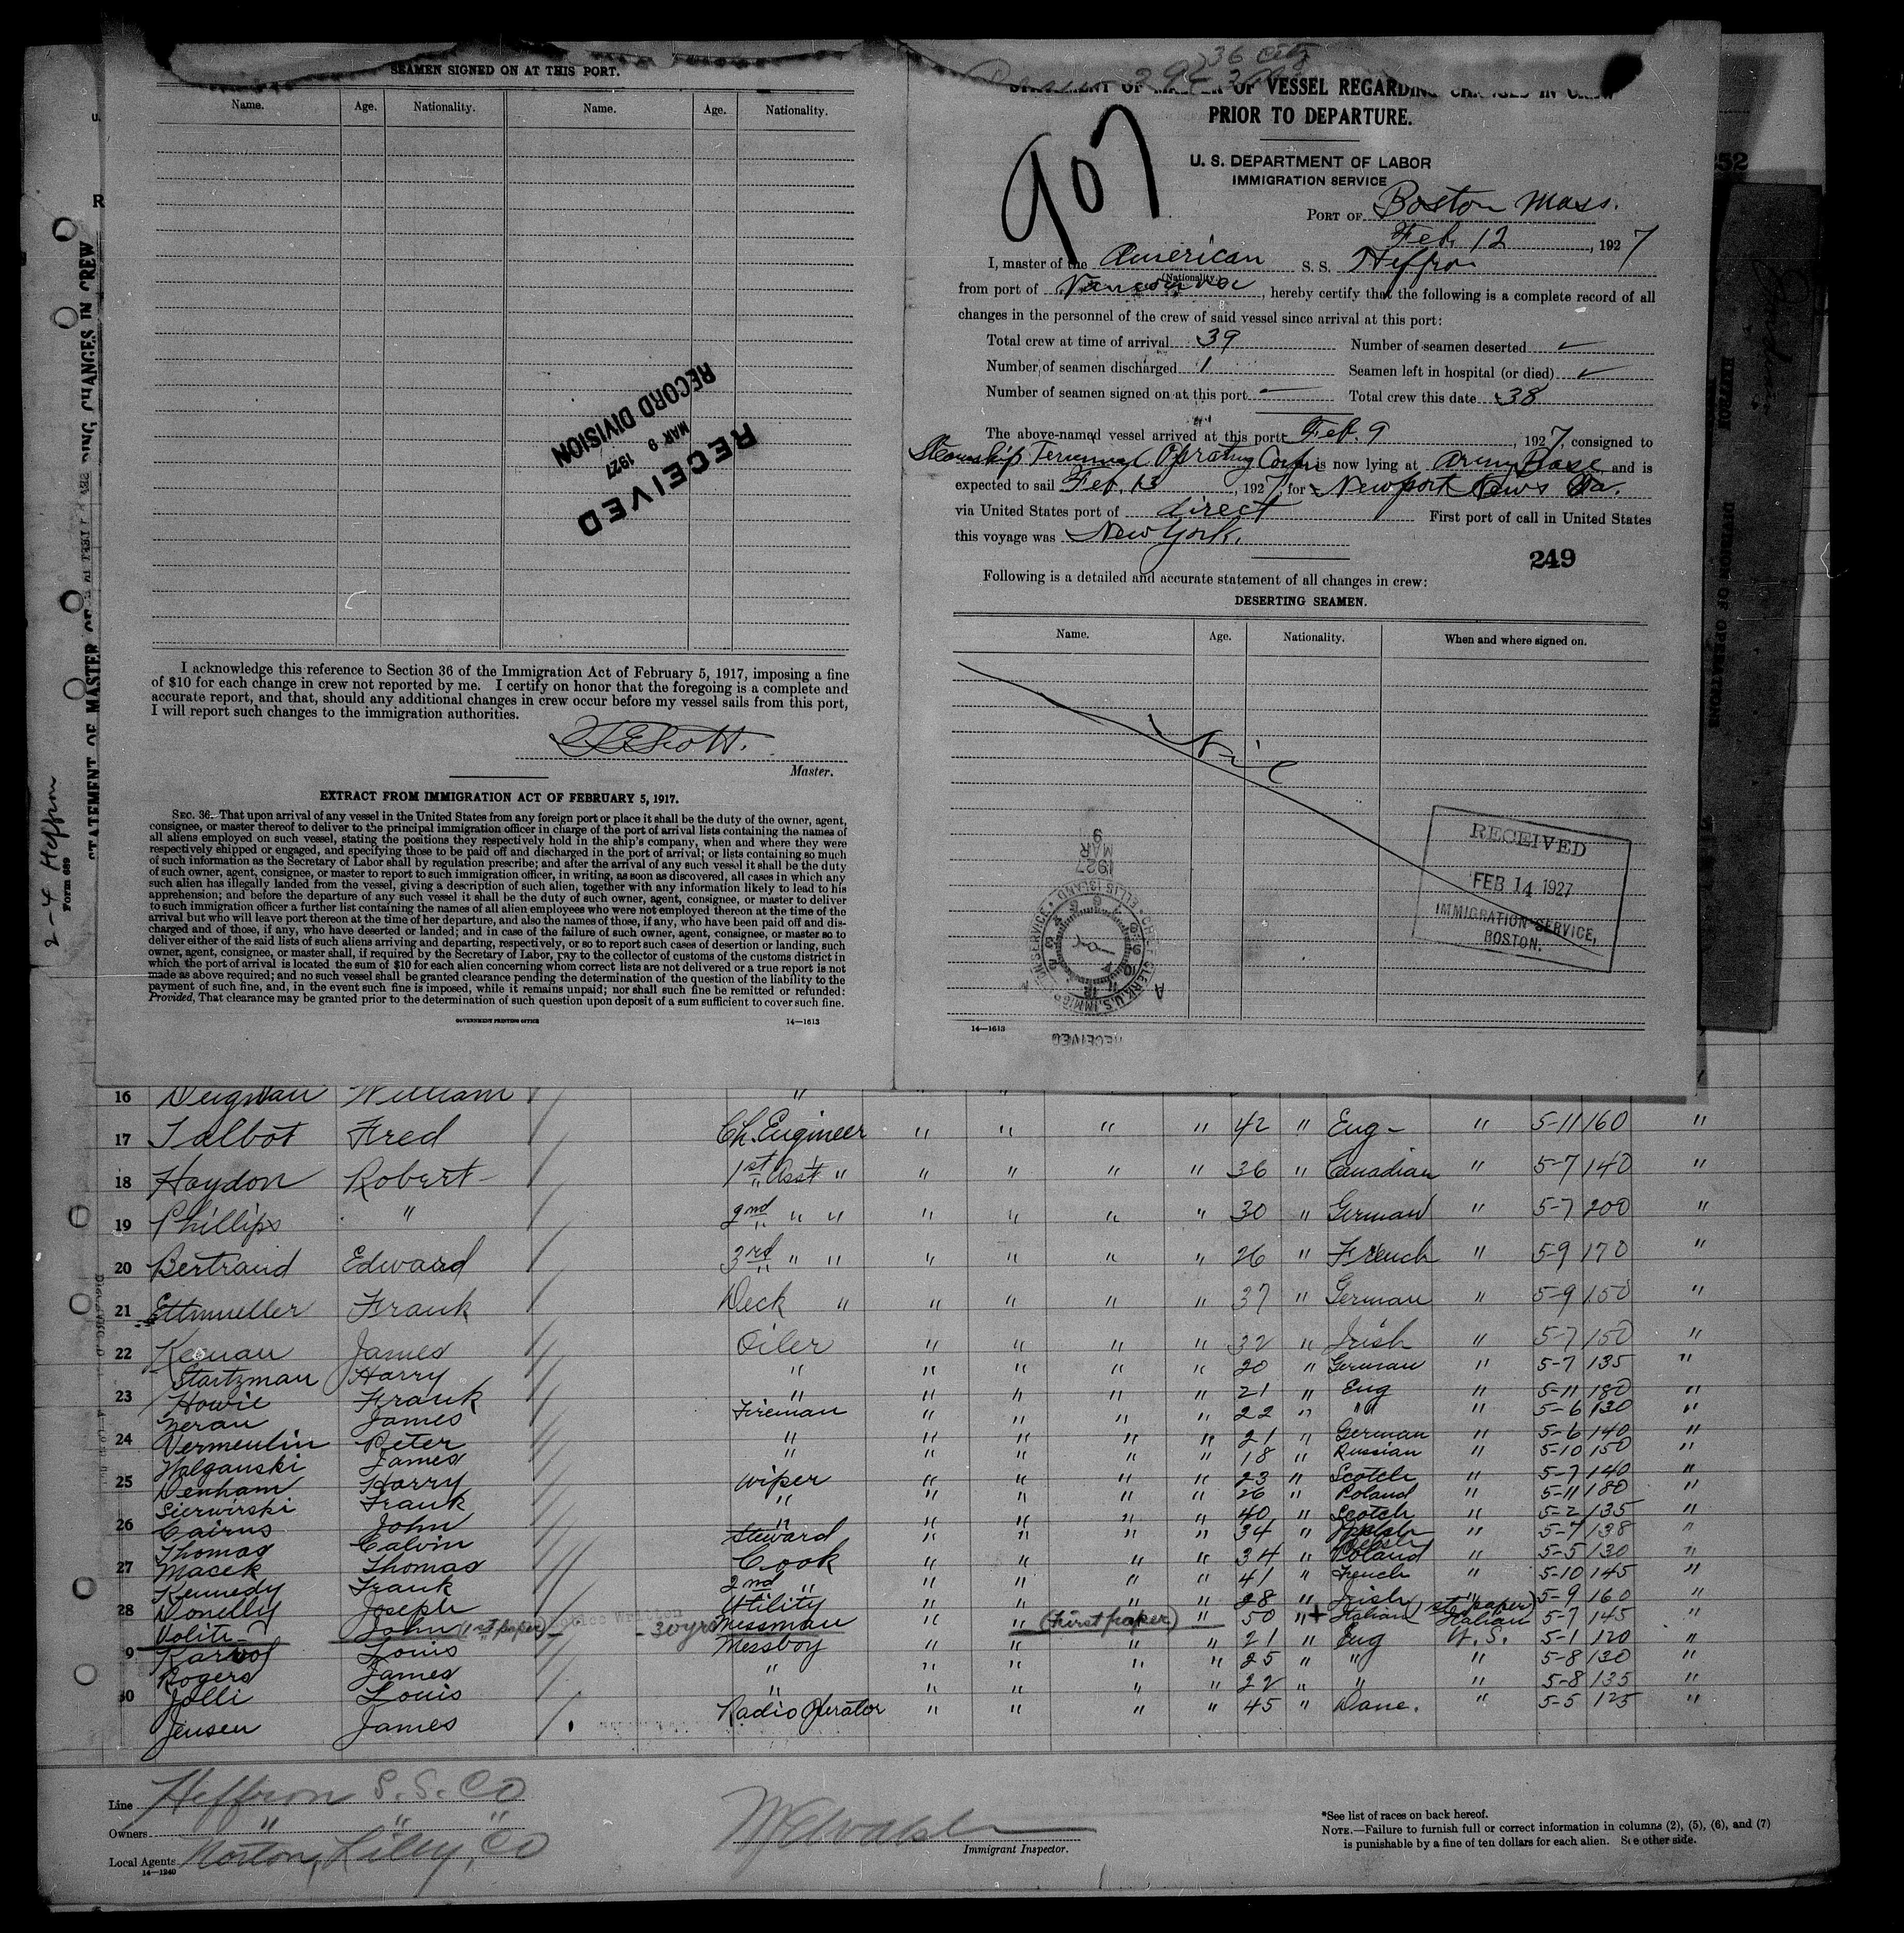 SEAMEN SIGNED ON AT THIS PORT.
Name. Age. Nationality. Name. Age. Nationality.
RECEIVED
MAR 9 1927
RECORD DIVISION
I acknowledge this reference to Section 36 of the Immigration Act of February 5, 1917, imposing a fine
of $10 for each change in crew not reported by me. I certify on honor that the foregoing is a complete and
accurate report, and that, should any additional changes in crew occur before my vessel sails from this port,
I will report such changes to the immigration authorities.
Scott.
Master.
EXTRACT FROM IMMIGRATION ACT OF FEBRUARY 5, 1917.
SEC. 36. That upon arrival of any vessel in the United States from any foreign port or place it shall be the duty of the owner, agent,
consignee, or master thereof to deliver to the principal immigration officer in charge of the port of arrival lists containing the names of
all aliens employed on such vessel, stating the positions they respectively hold in the ship's company, when and where they were
respectively shipped or engaged, and specifying those to be paid off and discharged in the port of arrival; or lists containing so much
of such information as the Secretary of Labor shall by regulation prescribe; and after the arrival of any such vessel it shall be the duty
of such owner, agent, consignee, or master to report to such immigration officer, in writing, as soon as discovered, all cases in which any
such alien has illegally landed from the vessel, giving a description of such alien, together with any information likely to lead to his
apprehension; and before the departure of any such vessel it shall be the duty of such owner, agent, consignee, or master to deliver
to such immigration officer a further list containing the names of all alien employees who were not employed thereon at the time of the
arrival but who will leave port thereon at the time of her departure, and also the names of those, if any, who have been paid off and dis-
charged and of those, if any, who have deserted or landed; and in case of the failure of such owner, agent, consignee, or master so to
deliver either of the said lists of such aliens arriving and departing, respectively, or so to report such cases of desertion or landing, such
owner, agent, consignee, or master shall, if required by the Secretary of Labor, pay to the collector of customs of the customs district in
which the port of arrival is located the sum of $10 for each alien concerning whom correct lists are not delivered or a true report is not
made as above required; and no such vessel shall be granted clearance pending the determination of the question of the liability to the
payment of such fine, and, in the event such fine is imposed, while it remains unpaid; nor shall such fine be remitted or refunded:
Provided, That clearance may be granted prior to the determination of such question upon deposit of a sum sufficient to cover such fine.
GOVERNMENT PRINTING OFFICE 14—1613
2-4 Heffron
Form 689
STATEMENT OF MASTER OF
CHANGES IN CREW
36 city
OF VESSEL REGARDING CHANGES IN CREW
PRIOR TO DEPARTURE.
907
U. S. DEPARTMENT OF LABOR
IMMIGRATION SERVICE
PORT OF Boston Mass.
Feb. 12, 1927
I, master of the American S. S. Heffron
(Nationality)
from port of Vancouver, hereby certify that the following is a complete record of all
changes in the personnel of the crew of said vessel since arrival at this port:
Total crew at time of arrival 39 Number of seamen deserted ✓
Number of seamen discharged 1 Seamen left in hospital (or died) ✓
Number of seamen signed on at this port — Total crew this date 38
The above-named vessel arrived at this port Feb. 9, 1927, consigned to
Steamship Terminal Operating Corp. is now lying at Army Base and is
expected to sail Feb. 13, 1927, for Newport News Va.
via United States port of direct First port of call in United States
this voyage was New York.
249
Following is a detailed and accurate statement of all changes in crew:
DESERTING SEAMEN.
Name. Age. Nationality. When and where signed on.
Nil
RECEIVED
FEB 14 1927
IMMIGRATION SERVICE,
BOSTON.
1927 MAR 9
CHIEF CLERK U.S. IMMIGRATION SERVICE • ELLIS ISLAND
RECEIVED
14—1613
HEFFRON
DIVISION OF OPERATIONS
16 Deignan William "
17 Talbot Fred Ch. Engineer " " " " 42 " Eng - " 5-11 160 "
18 Haydon Robert 1st Asst " " " " " 36 " Canadian " 5-7 140 "
19 Phillips " 2nd " " " " " " 30 " German " 5-7 200 "
20 Bertrand Edward 3rd " " " " " " 26 " French " 5-9 170 "
21 Ettmueller Frank Deck " " " " " 37 " German " 5-9 150 "
22 Kenan James Oiler " " " " 32 " Irish " 5-7 150 "
Startzman Harry " " " " " 20 " German " 5-7 135 "
23 Howie Frank " " " " " 21 " Eng " 5-11 180 "
Geran James Fireman " " " " 22 " " " 5-6 130 "
24 Vermeulin Peter " " " " " 21 " German " 5-6 140 "
Walganski James " " " " " 18 " Russian " 5-10 150 "
25 Denham Harry Wiper " " " " 23 " Scotch " 5-7 140 "
Sierwirski Frank " " " " " 26 " Poland " 5-11 180 "
26 Cairns John " " " " " 40 " Scotch " 5-2 135 "
Thomas Calvin Steward " " " " 34 " Welsh " 5-7 138 "
27 Macek Thomas Cook " " " " 34 " Poland " 5-5 130 "
Kennedy Frank 2nd " " " " " 41 " French " 5-10 145 "
28 Donelly Joseph Utility " " " " 28 " Irish " 5-9 160 "
Voliti John (1st paper) 30 yrs Messman " " (first paper) " 50 " + Italian (1st paper) Italian 5-7 145 "
9 Karvos Louis Messboy " " " " 21 " Eng U.S. 5-1 120 "
Rogers James " " " " " 25 " " " 5-8 130 "
30 Jolli Louis " " " " " 22 " " " 5-8 135 "
Jensen James Radio Operator " " " " 45 " Dane. " 5-5 125 "
Line Heffron S. S. Co
Owners " " "
Local Agents Norton, Lilly, Co
14—1240
Immigrant Inspector.
*See list of races on back hereof.
NOTE.—Failure to furnish full or correct information in columns (2), (5), (6), and (7)
is punishable by a fine of ten dollars for each alien. See other side.